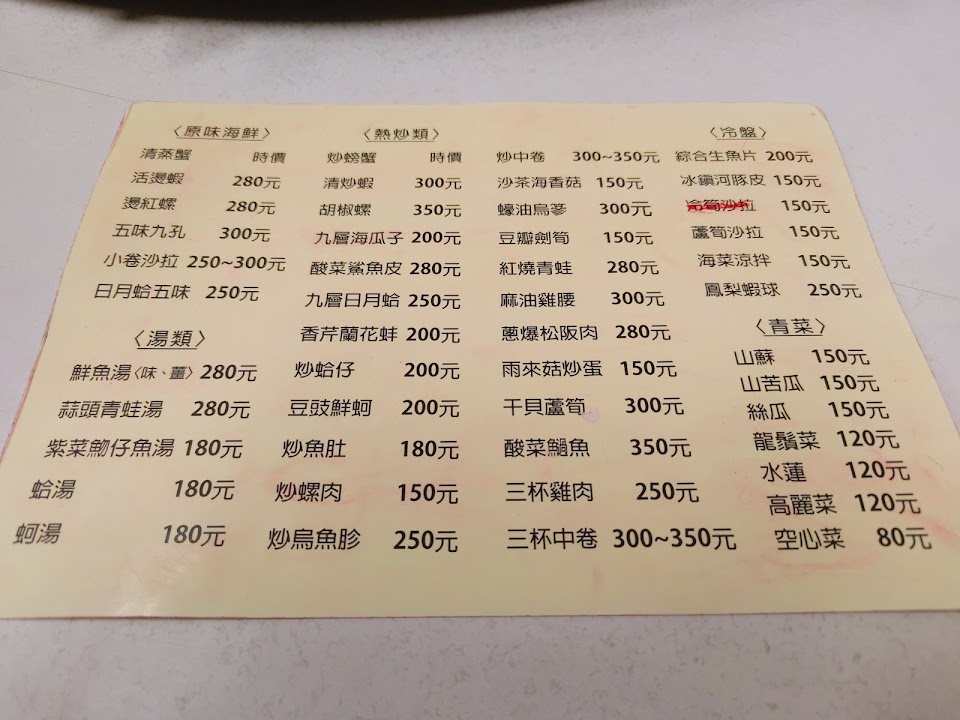 〈原味海鮮〉
清蒸蟹 時價
活燙蝦 280元
燙紅螺 280元
五味九孔 300元
小卷沙拉 250~300元
日月蛤五味 250元
〈湯類〉
鮮魚湯〈味、薑〉 280元
蒜頭青蛙湯 280元
紫菜魩仔魚湯 180元
蛤湯 180元
蚵湯 180元
〈熱炒類〉
炒螃蟹 時價
清炒蝦 300元
胡椒螺 350元
九層海瓜子 200元
酸菜鯊魚皮 280元
九層日月蛤 250元
香芹蘭花蚌 200元
炒蛤仔 200元
豆豉鮮蚵 200元
炒魚肚 180元
炒螺肉 150元
炒烏魚胗 250元
炒中卷 300~350元
沙茶海香菇 150元
蠔油烏蔘 300元
豆瓣劍筍 150元
紅燒青蛙 280元
麻油雞腰 300元
蔥爆松阪肉 280元
雨來菇炒蛋 150元
干貝蘆筍 300元
酸菜鰮魚 350元
三杯雞肉 250元
三杯中卷 300~350元
〈冷盤〉
綜合生魚片 200元
冰鎮河豚皮 150元
冷筍沙拉 150元
蘆筍沙拉 150元
海菜涼拌 150元
鳳梨蝦球 250元
〈青菜〉
山蘇 150元
山苦瓜 150元
絲瓜 150元
龍鬚菜 120元
水蓮 120元
高麗菜 120元
空心菜 80元